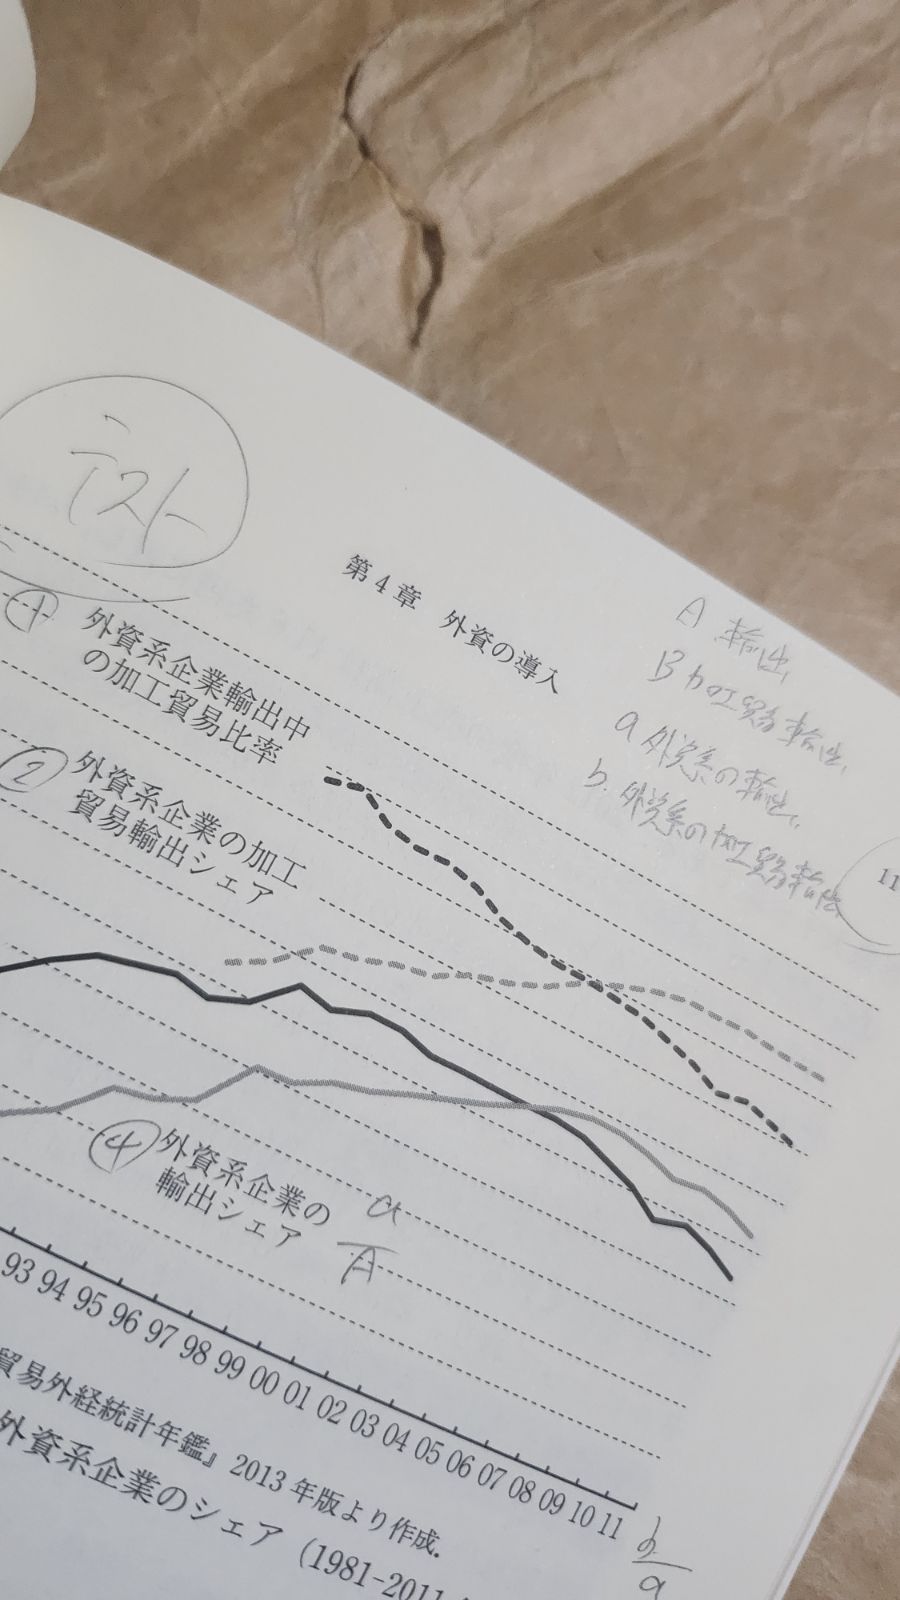 テスト
第4章 外資の導入
A 輸出
B 加工貿易輸出
a 外資系の輸出
b. 外資系の加工貿易輸出
11
① 外資系企業輸出中
の加工貿易比率
② 外資系企業の加工
貿易輸出シェア
④ 外資系企業の
輸出シェア
a
A
93 94 95 96 97 98 99 00 01 02 03 04 05 06 07 08 09 10 11
貿易外経統計年鑑』2013年版より作成.
外資系企業のシェア (1981-2011
b
a